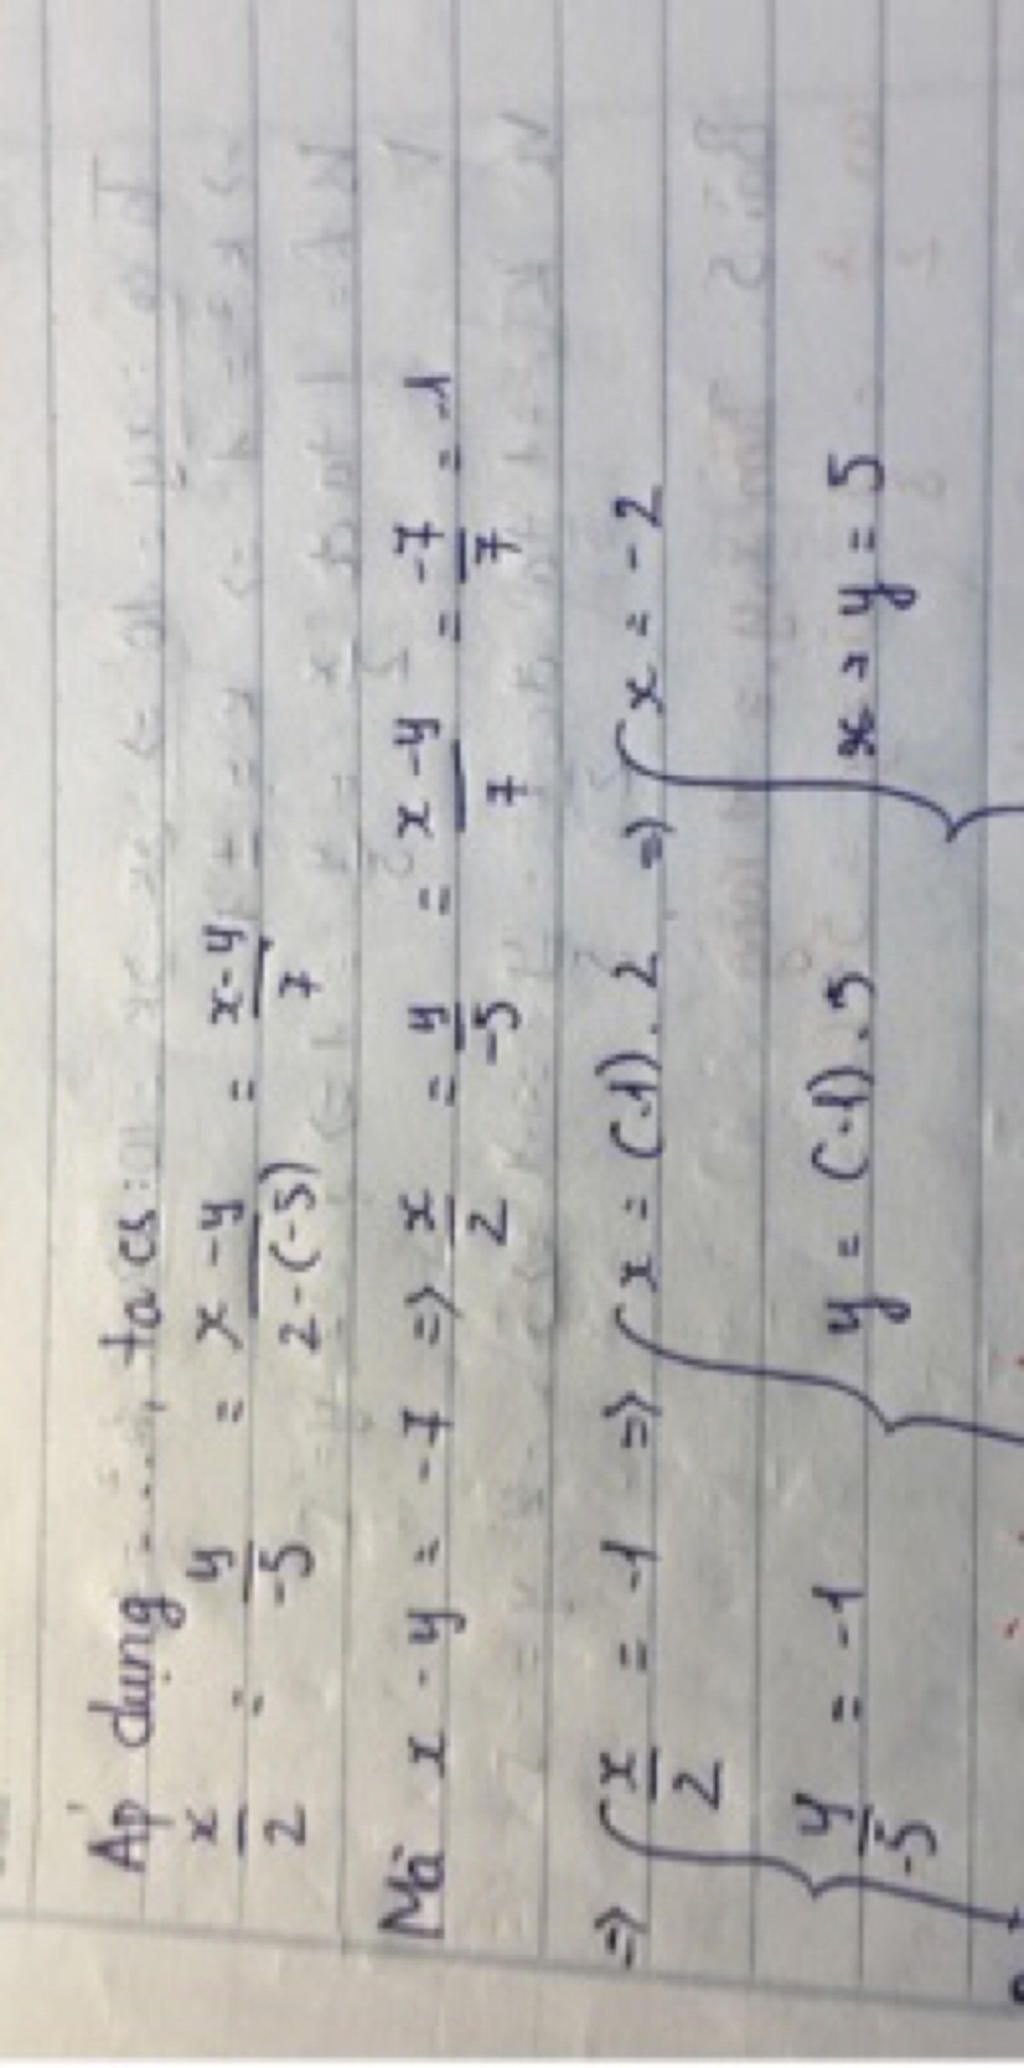 Áp dụng ....., ta có:
x/2 = y/-5 = x-y/2-(-5) = x-y/7
Mà x-y = -7 => x/2 = y/-5 = x-y/7 = -7/7 = -1
=> { x/2 = -1 => { x = (-1).2 => { x = -2
y/-5 = -1 y = (-1).5 y = 5